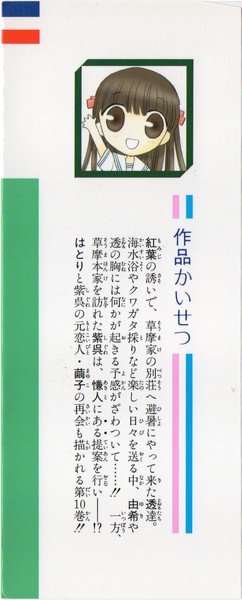 作品かいせつ
紅葉の誘いで、草摩家の別荘へ避暑にやって来た透達。
海水浴やクワガタ採りなど楽しい日々を送る中、由希や
透の胸には何かが起きる予感がざわついて……!! 一方、
草摩本家を訪れた紫呉は、慊人にある提案を行い――!?
はとりと紫呉の元恋人・繭子の再会も描かれる第10巻!!